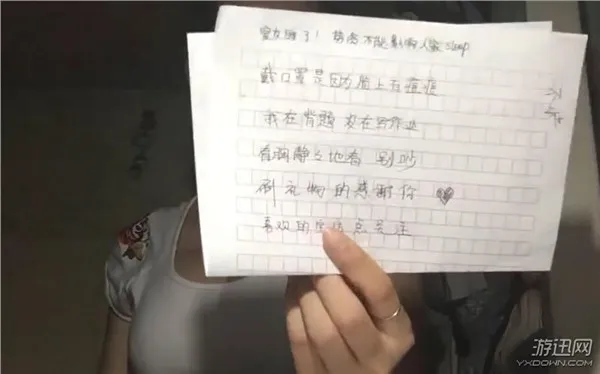 室友睡了！ 势态不能影响人家 sleep
戴口罩是因为脸上有痘痘
我在背题 我在写作业
看到静静地看 别吵
刷礼物的感谢你
喜欢的宝宝点关注
游迅网
YXDOWN.COM